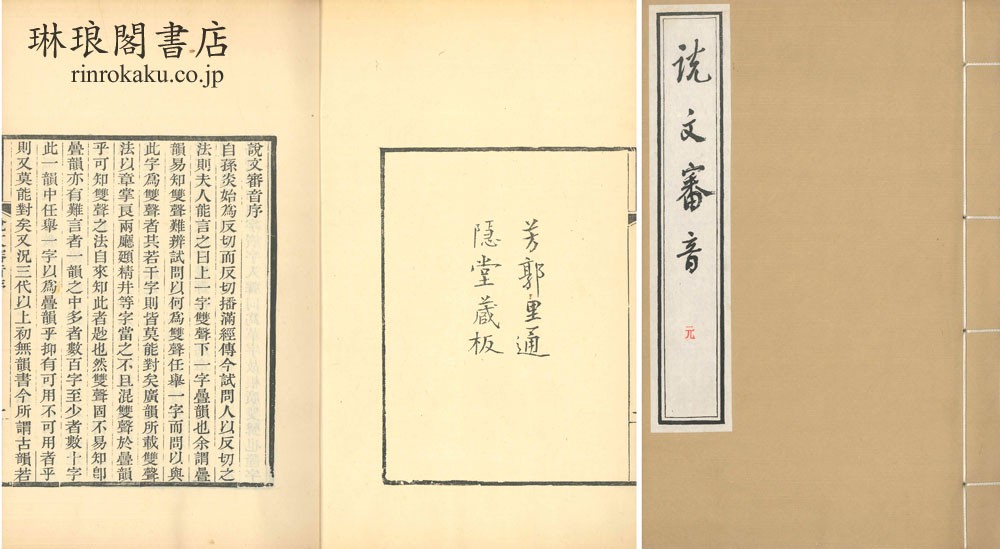 琳琅閣書店
rinrokaku.co.jp
説文審音
元
芳郭里通
隠堂蔵板
說文審音序
自孫炎始為反切而反切播滿經傳今試問人以反切之
法則夫人能言之曰上一字雙聲下一字疊韻也余謂疊
韻易知雙聲難辨試問以何為雙聲任舉一字而問以與
此字為雙聲者其若干字則皆莫能對矣廣韻所載雙聲
法以章掌良兩廳頲精井等字當之不且混雙聲於疊韻
乎可知雙聲之法自來知此者尟也然雙聲固不易知卽
疊韻亦有難言者一韻之中多者數百字至少者數十字
此一韻中任舉一字以為疊韻乎抑有可用不可用者乎
則又莫能對矣又況三代以上初無韻書今所謂古韻若